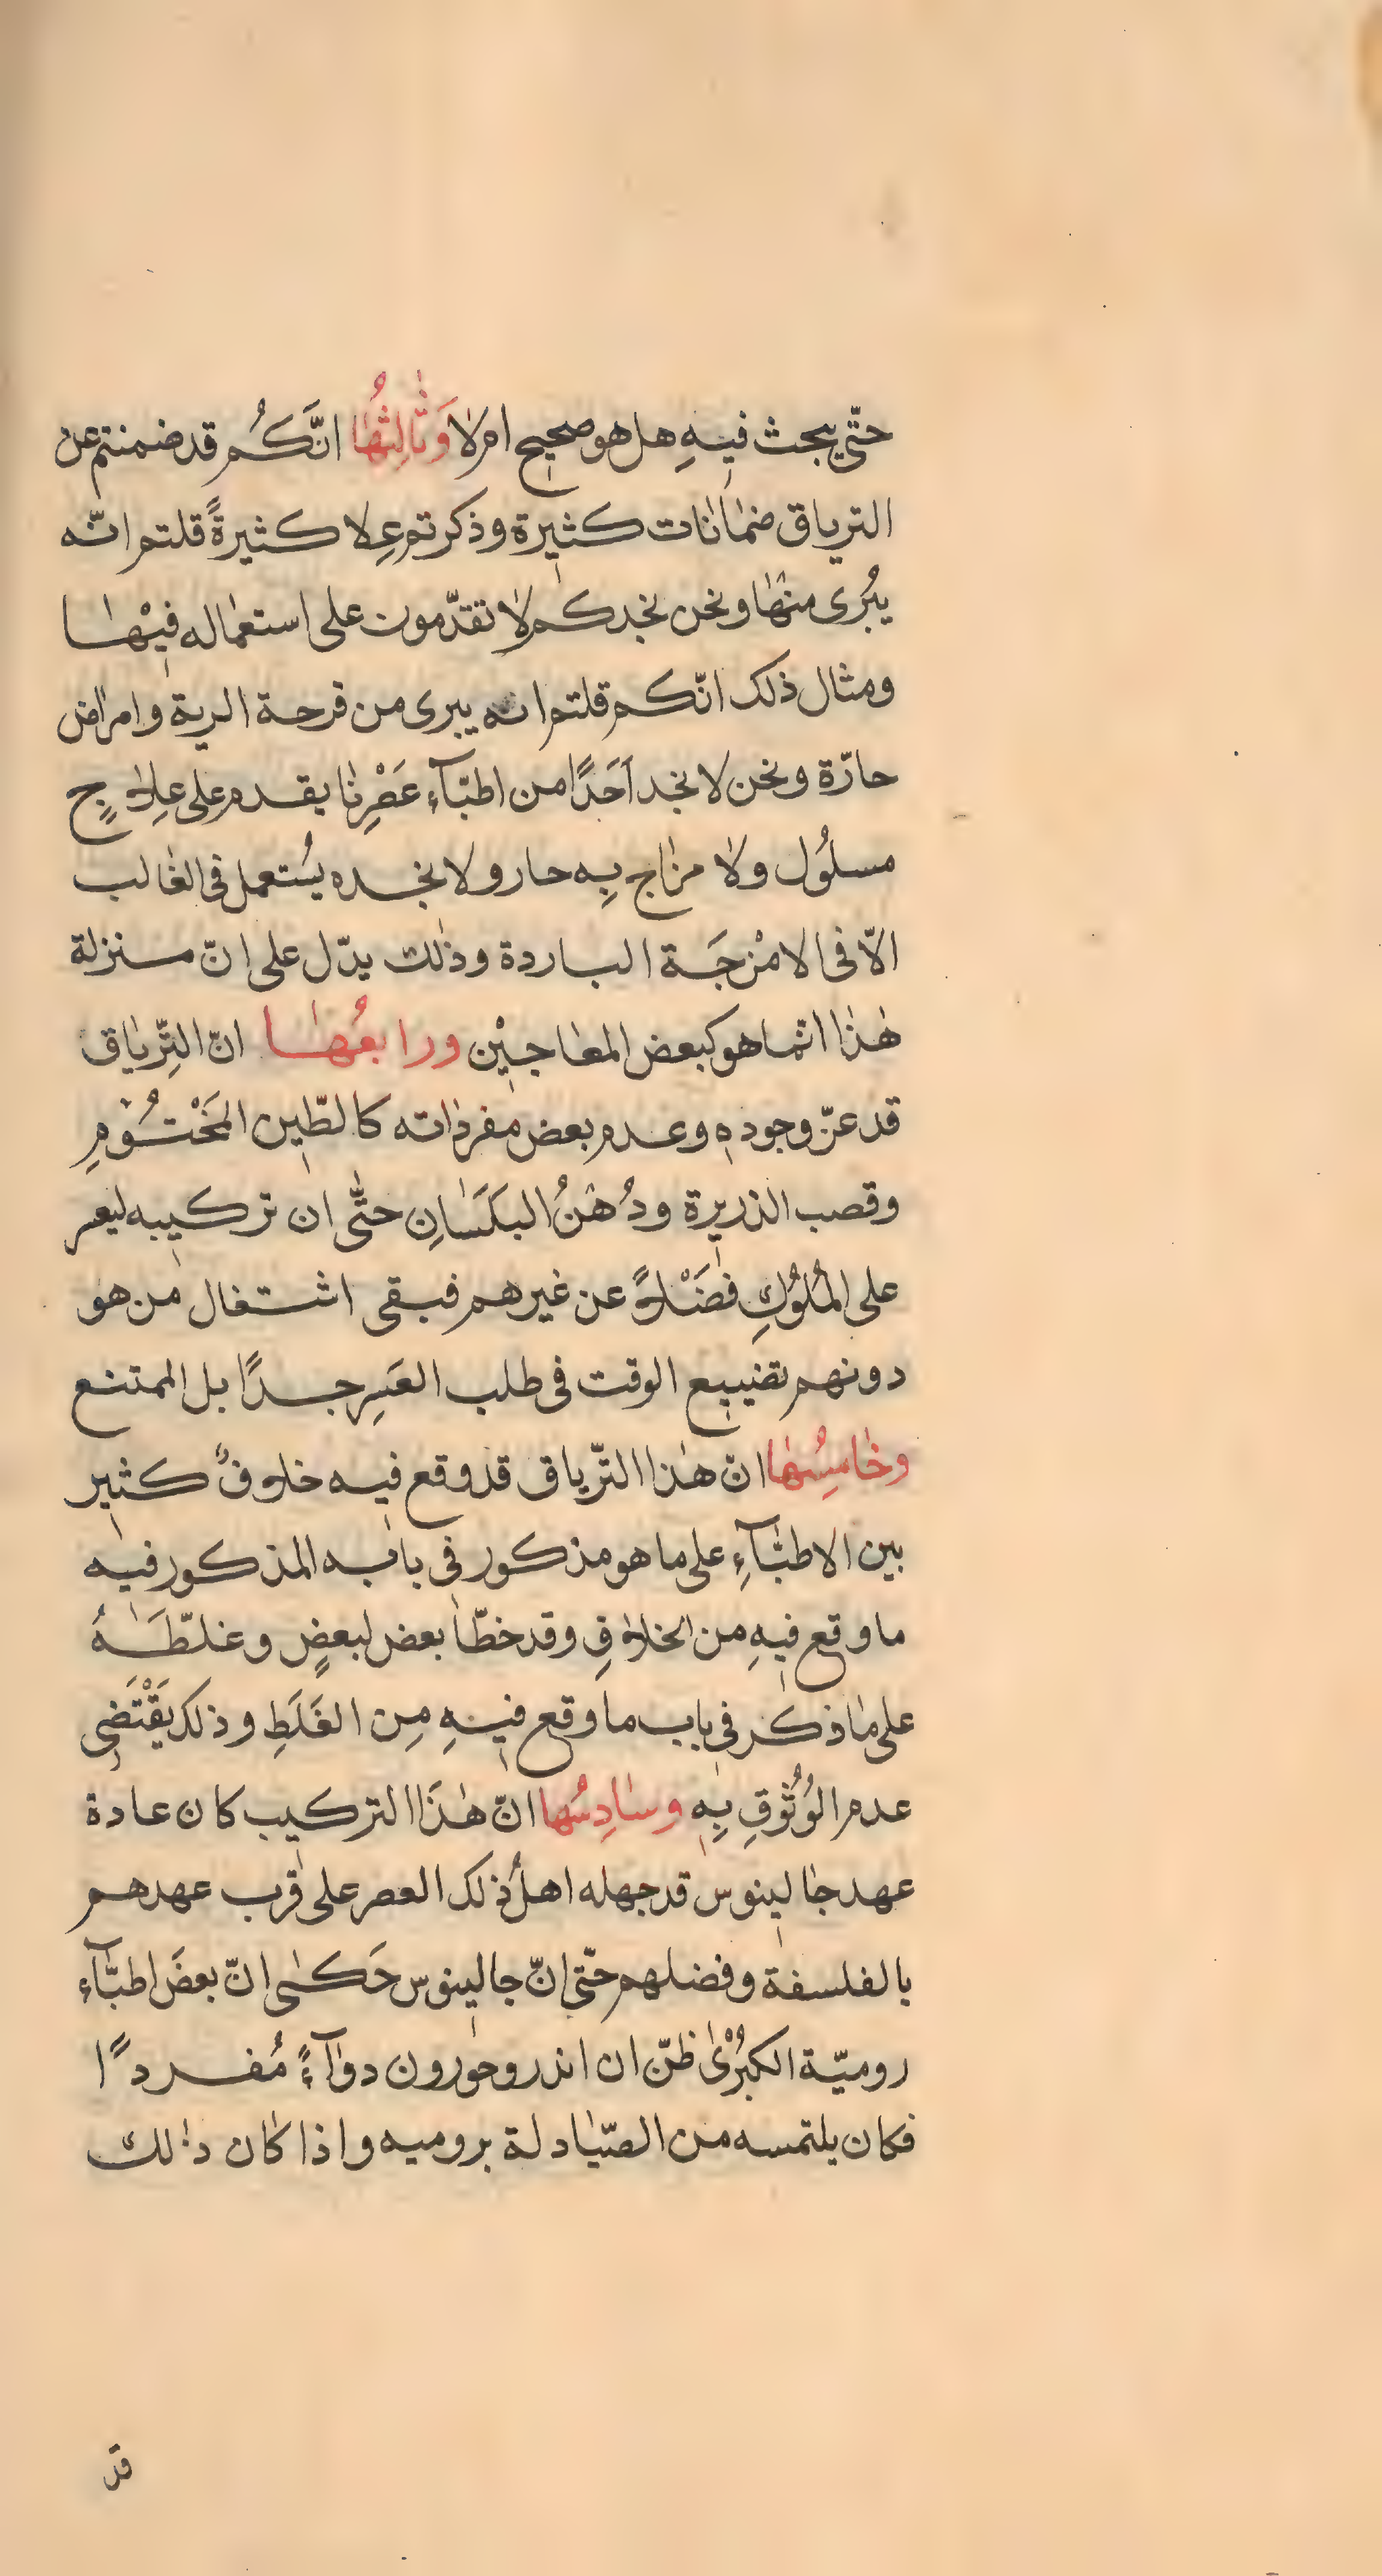 حتّى يبحث فيهِ هل هو صحيح امر لا وَثَالِثُهَا انَّكُم قد ضمنتم عن
الترياق ضمانات كثيرة وذكرتم عِلا كثيرةً قلتم انّه
يُبرى منها ونحن نجدكم لا تقدّمون على استعماله فِيْها
ومثال ذلك انّكم قلتم انه يبرى من قرحة الرية وامراض
حارّة ونحن لا نجد اَحَدًا من اطبّآء عَصْرِنا يقدم على عِلاجٍ
مسلُول ولا مزاج بِه حار ولا نجده يُستعمل فى الغالب
الّا فى الامْزجَة الباردة وذلك يدّل على انّ منزلة
هٰذا انّما هو كبعض المعاجِيْن ورابعُها انّ التِّرياق
قد عزّ وجوده وعدم بعض مفرداته كالطّين المَخْتُوْمِ
وقصب الذريرة ودُهْنُ البَلَسَانِ حتّى ان تركيبه ليعسر
على المُلُوْكِ فضَلْاً عن غيرهم فبقى اشتغال من هو
دونهم تضييع الوقت فى طلب العَسِر جدًا بل الممتنع
وخَامِسُها انّ هٰذا التّرياق قد وقع فيه خلافٌ كثير
بين الاطبّآءِ على ما هو مذكور فى بابه المذكور فيه
ما وقع فيهِ من الخلافِ وقد خطّا بعض لبعضٍ وغلّطَهُ
على ما ذكر فى باب ما وقع فيهِ مِن الغَلَطِ وذلك يَقْتَضِى
عدم الوُثُوْقِ بِهِ وسَادِسُها انّ هٰذَا التركيب كان عادة
عهد جالينوس قد جهله اهلُ ذلك العصر على قرب عهدهم
بالفلسفة وفضلهم حتّى انّ جالينوس حَكى انّ بعضَ اطبّآء
روميّة الكبْرُىٰ ظنّ ان اندروحورون دوآءً مُفردًا
فكان يلتمسه من الصّيادلة بروميه واذا كان ذلك
قد